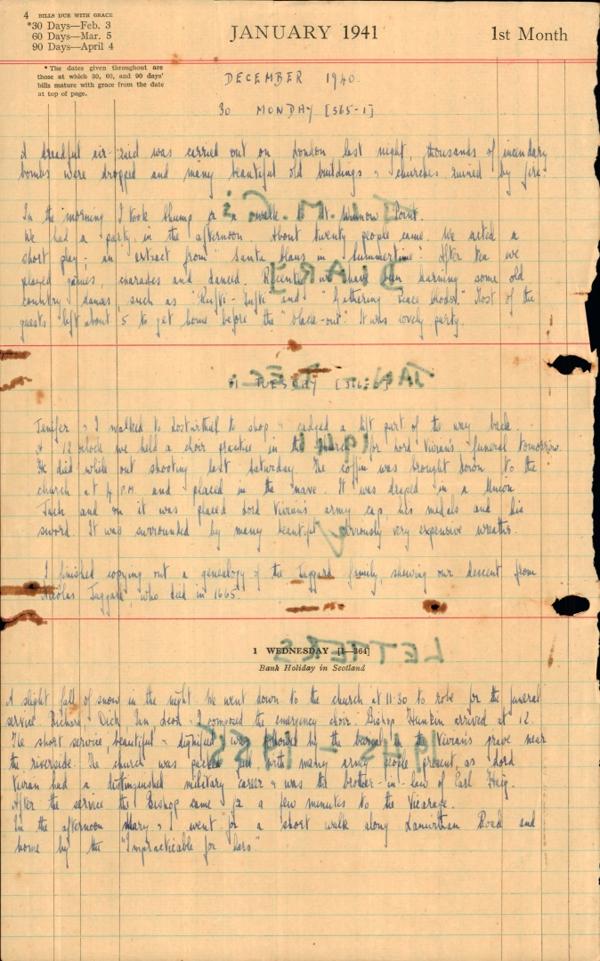 4 BILLS DUE WITH GRACE
*30 Days—Feb. 3
60 Days—Mar. 5
90 Days—April 4
JANUARY 1941
1st Month
* The dates given throughout are
those at which 30, 60, and 90 days'
bills mature with grace from the date
at top of page.
DECEMBER 1940.
30 MONDAY [365-1]
A dreadful air-raid was carried out on London last night, thousands of incendiary
bombs were dropped and many beautiful old buildings & churches ruined by fire.
In the morning I took Thump for a walk to St. Winnow Point.
We had a party in the afternoon. About twenty people came. We acted a
short play; an extract from "Santa Claus in Summertime". After tea we
played games, charades and danced. Recently we have been learning some old
country dances, such as "Rufty-Tufty" and "Gathering Peace Cods". Most of the
guests left about 5 to get home before the "black-out". It was lovely party.
31 TUESDAY [366]
Jenifer & I walked to Lostwithiel to shop & cadged a lift part of the way back.
At 12 o'clock we held a choir practice in the church for Lord Vivian's funeral tomorrow.
He died while out shooting last Saturday. The coffin was brought down to the
church at 4 P.M. and placed in the nave. It was draped in a Union
Jack and on it was placed Lord Vivian's army cap, his medals and his
sword. It was surrounded by many beautiful & obviously very expensive wreaths.
I finished copying out a genealogy of the Taggard family, shewing our descent from
Nicolas Taggard, who died in 1665.
1 WEDNESDAY [1—364]
Bank Holiday in Scotland
A slight fall of snow in the night. We went down to the church at 11.30 to robe for the funeral
service. Richard, Dick, Ian, Leon & I composed the emergency choir. Bishop Hunkin arrived at 12.
The short service, beautiful & dignified was followed by the burial in the Vivian's grave near
the riverside. The church was packed with many army people present, as Lord
Vivian had a distinguished military career & was the brother-in-law of Earl Haig.
After the service the Bishop came for a few minutes to the Vicarage.
In the afternoon Mary & I went for a short walk along Lanwithan Road and
home by the "Impracticable for Cars".
DIARY
JAN - DEC
1941
LETTERS
1945 - 1955